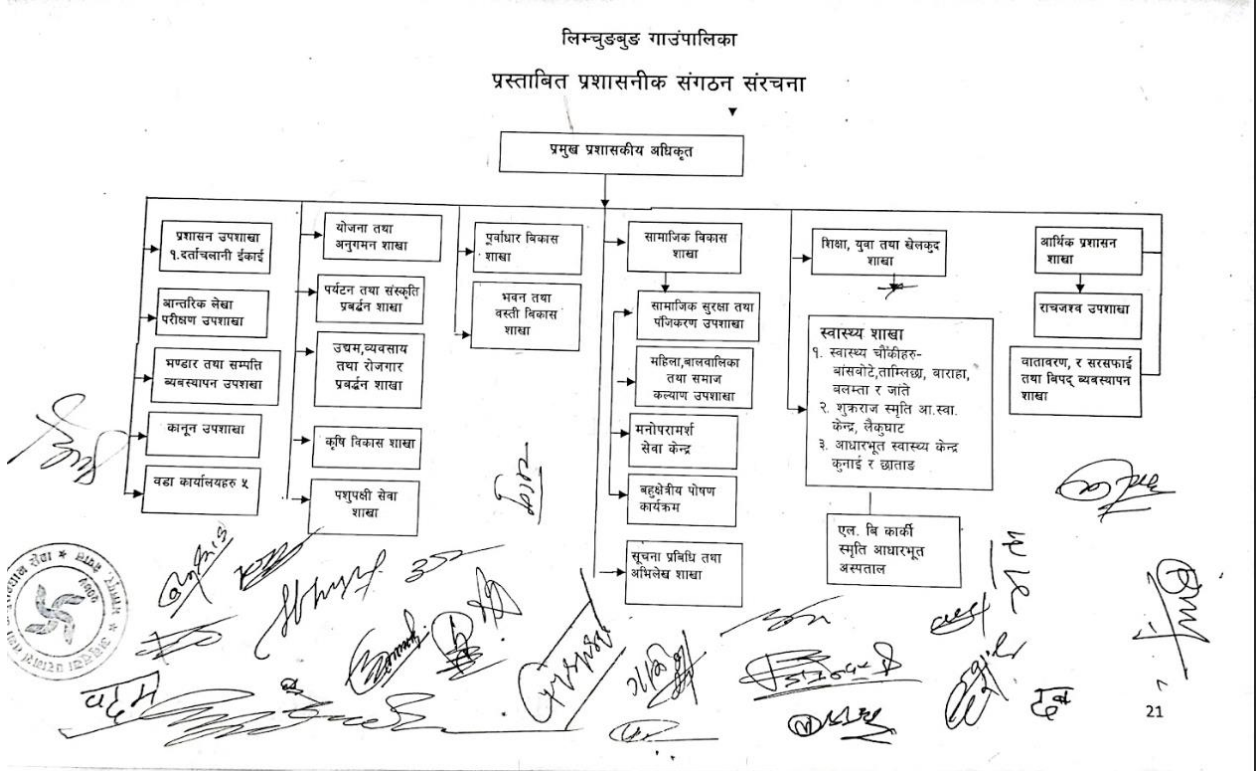 लिम्चुङबुङ गाउंपालिका
प्रस्ताबित प्रशासनीक संगठन संरचना
प्रमुख प्रशासकीय अधिकृत
प्रशासन उपशाखा
१.दर्ताचलानी ईकाई
आन्तरिक लेखा
परीक्षण उपशाखा
भण्डार तथा सम्पत्ति
ब्यबस्यापन उपशखा
कानून उपशाखा
वडा कार्यालयहरु ५
योजना तथा
अनुगमन शाखा
पर्यटन तथा संस्कृति
प्रबर्द्धन शाखा
उद्यम,व्यवसाय
तथा रोजगार
प्रबर्द्धन शाखा
कृषि विकास शाखा
पशुपक्षी सेवा
शाखा
पूर्वाधार बिकास
शाखा
भवन तथा
वस्ती बिकास
शाखा
सामाजिक बिकास
शाखा
सामाजिक सुरक्षा तथा
पंजिकरण उपशाखा
महिला,बालवालिका
तथा समाज
कल्याण उपशाखा
मनोपरामर्श
सेवा केन्द्र
बहुक्षेत्रीय पोषण
कार्यक्रम
सूचना प्रबिधि तथा
अभिलेख शाखा
शिक्षा, युवा तथा खेलकुद
शाखा
स्वास्थ्य शाखा
१. स्वास्थ्य चौकीहरु-
बांसबोटे,ताम्लिछा, बाराहा,
बलम्ता र जांते
२. शुक्रराज स्मृति आ.स्वा.
केन्द्र, लैकुघाट
३. आधारभूत स्वास्थ्य केन्द्र
कुनाई र छाताङ
एल. बि कार्की
स्मृति आधारभूत
अस्पताल
आर्थिक प्रशासन
शाखा
राचजश्व उपशाखा
वातावरण, र सरसफाई
तथा बिपद् ब्यबस्यापन
शाखा
21